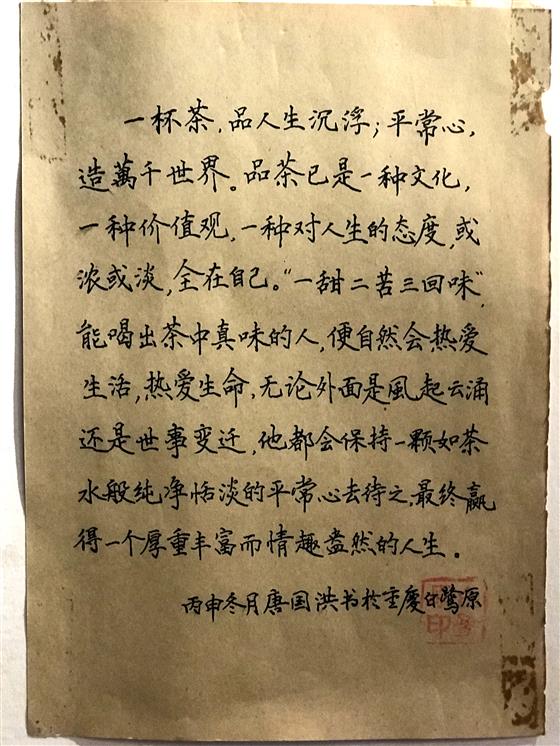 一杯茶，品人生沉浮；平常心，
造萬千世界。品茶已是一种文化，
一种价值观，一种对人生的态度，或
浓或淡，全在自己。“一甜二苦三回味”，
能喝出茶中真味的人，便自然会热爱
生活，热爱生命，无论外面是風起云涌
还是世事变迁，他都会保持一颗如茶
水般纯净恬淡的平常心去待之，最终赢
得一个厚重丰富而情趣盎然的人生。
丙申冬月唐国洪书於重慶白鹭原